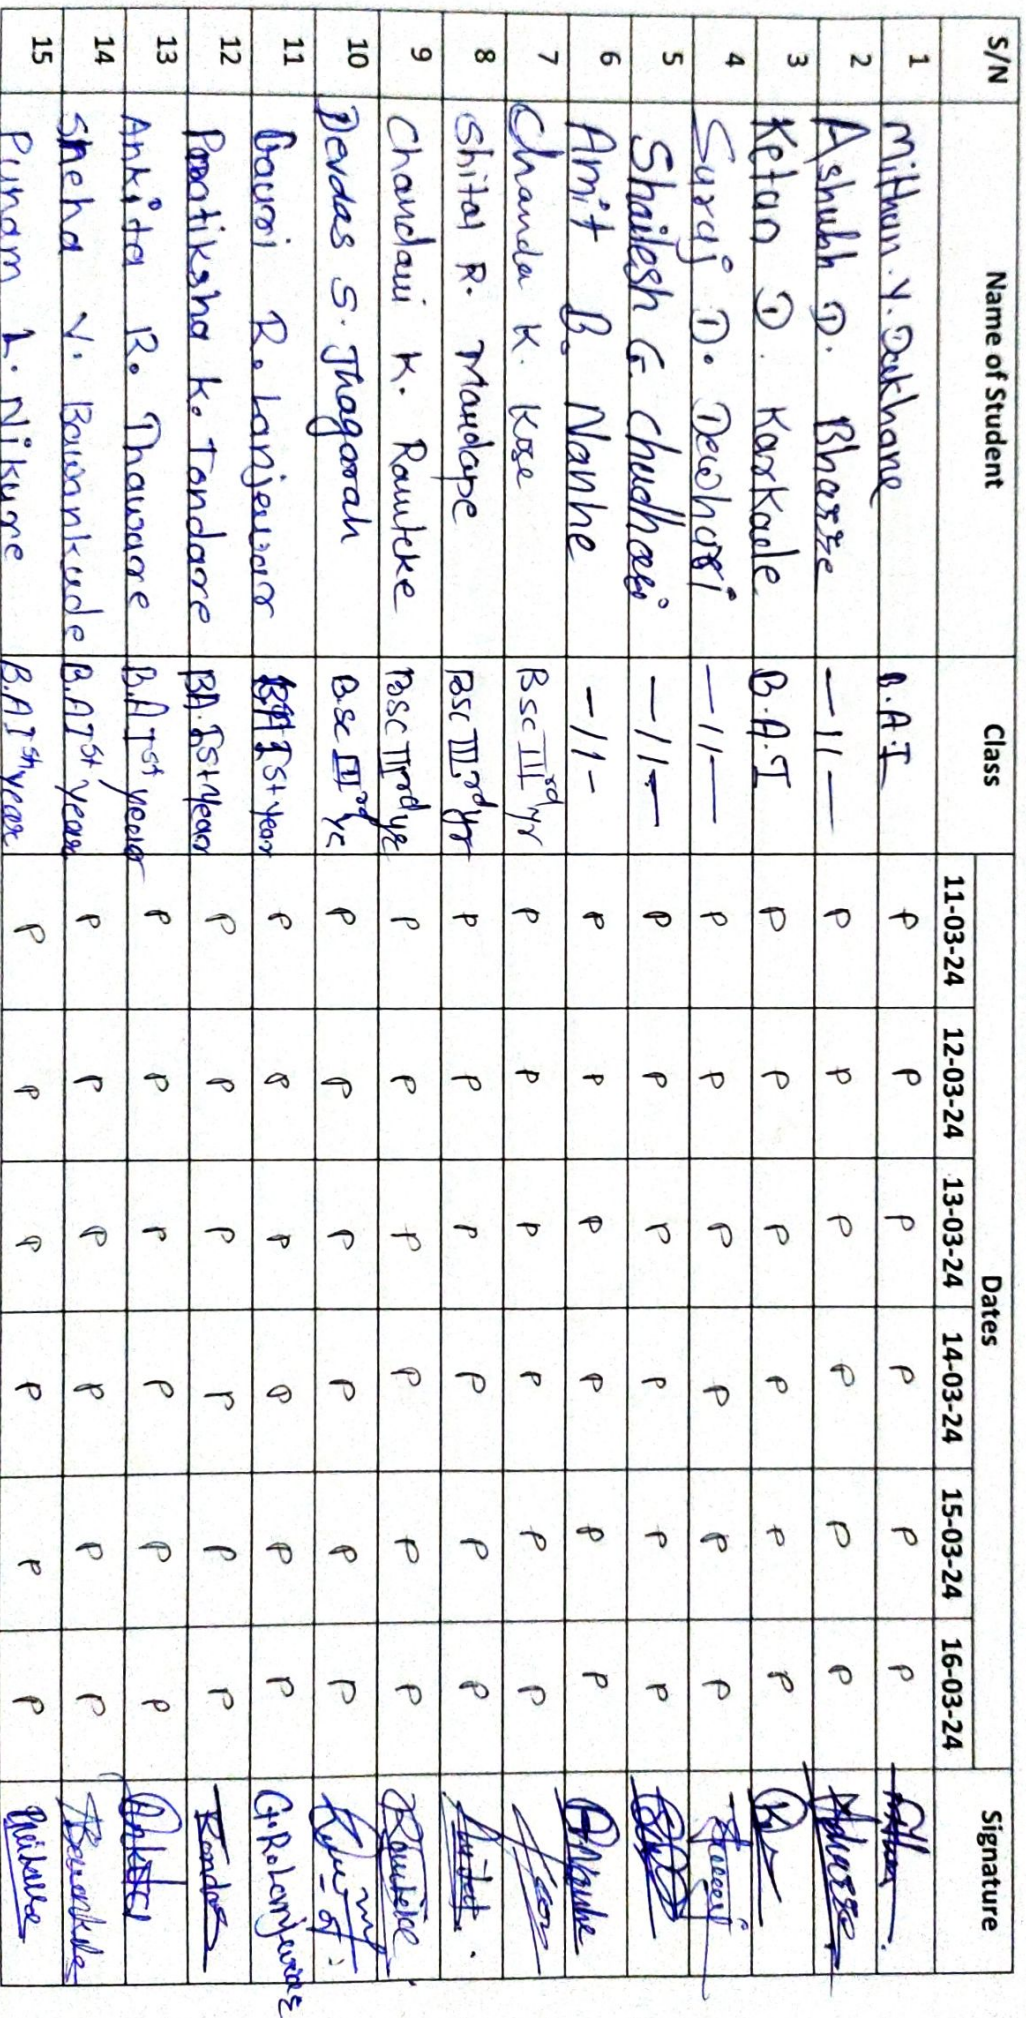 S/N Name of Student Class Dates Signature
11-03-24 12-03-24 13-03-24 14-03-24 15-03-24 16-03-24
1 Mithun . Y. Dakhane B.A.I P P P P P P
2 Ashubh D. Bharse —11— P P P P P P
3 Ketan D. Karkade B.A.I P P P P P P
4 Suraj D. Dewhari —11— P P P P P P
5 Shailesh G. Chudhari —11— P P P P P P
6 Amit B. Nanhe —11— P P P P P P
7 Chanda K. Kose Bsc IIIrd yr P P P P P P
8 Shital R. Mandape Bsc III rd yr P P P P P P
9 Chandani K. Rauteke Bsc IIIrd yr P P P P P P Rauteke
10 Devdas S. Thagarah B.sc IIIrd yr P P P P P P
11 Gauri R. Lanjewar BA Ist year P P P P P P G.R.Lanjewar
12 Pratiksha K. Tondare BA. Ist year P P P P P P
13 Ankita R. Dhaware B.A Ist year P P P P P P Ankita
14 Sneha V. Bawankude B.A Ist year P P P P P P
15 Punam L. Nikure B.A Ist year P P P P P P